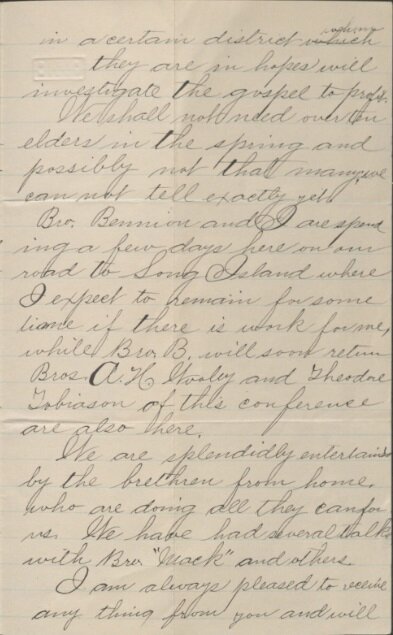 in a certain district whom
they are in hopes will
investigate the gospel to profit.
We shall not need over ten
elders in the spring and
possibly not that many, we
can not tell exactly yet.
Bro. Bennion and I are spend
ing a few days here on our
road to Long Island where
I expect to remain for some
time if there is work for me,
while Bro. B. will soon return
Bros. A. H. Wooley and Theodore
Tobiason of this conference
are also here.
We are splendidly entertained
by the brethren from home,
who are doing all they can for
us. We have had several talks
with Bro. "Mack" and others.
I am always pleased to receive
any thing from you and will